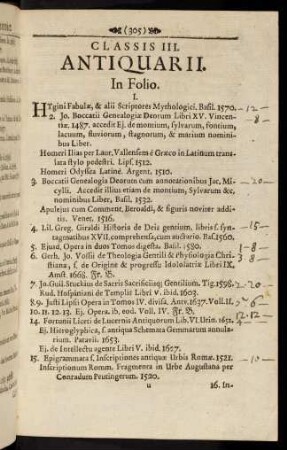 (305)
CLASSIS III.
ANTIQUARII.
In Folio.
I.
HYgini Fabulæ, & alii Scriptores Mythologici. Basil. 1570. - 12 -
2. Jo. Boccatii Genealogiæ Deorum Libri XV. Vincen-
tiæ. 1487. accedit Ej. de montium, sylvarum, fontium,
lacuum, fluviorum, stagnorum, & marium nomini-
bus Liber.
Homeri Ilias per Laur. Vallensem è Græco in Latinum trans-
lata stylo pedestri. Lips. 1512.
Homeri Odyssea Latinè. Argent. 1510.
3. Boccatii Genealogia Deorum cum annotationibus Jac. Mi-
cylli. Accedit illius etiam de montium, Sylvarum &c.
nominibus, Liber, Basil. 1532. - 20 -
Apulejus cum Comment. Beroaldi, & figuris noviter addi-
tis. Venet. 1516.
4. Lil. Greg. Giraldi Historia de Deis gentium, libris s. syn-
tagmatibus XVII. comprehensa, cum auctario. Bas. 1560. - 15 -
5. Ejusd. Opera in duos Tomos digesta. Basil. 1580. 1 - 8 -
6. Gerh. Jo. Vossii de Theologia Gentili & Physiologia Chri-
stiana, s. de Origine & progressu Idololatriæ Libri IX.
Amst. 1668. Fr. B. 1 - 8 -
7. Jo. Guil. Stuckius de Sacris Sacrificiisq; Gentium. Tig. 1598. - 20 -
Rud. Hospiniani de Templis Libri V. ibid. 1603.
8. 9. Justi Lipsii Opera in Tomos IV. divisa. Antv. 1637. Voll. II. 2 - 6 -
10. 11. 12. 13. Ej. Opera. ib. eod. Voll. IV. Fr. B.
14. Fortunii Liceti de Lucernis Antiquorum Lib. VI. Utin. 1652.
Ej. Hieroglyphica, s. antiqua Schemata Gemmarum annula-
rium. Patavii. 1653.
Ej. de Intellectu agente Libri V. ibid. 1627.
15. Epigrammata s. Inscriptiones antiquæ Urbis Romæ. 1521. - 10 -
Inscriptionum Romm. Fragmenta in Urbe Augustana per
Conradum Peutingerum. 1520.
u 16. In-